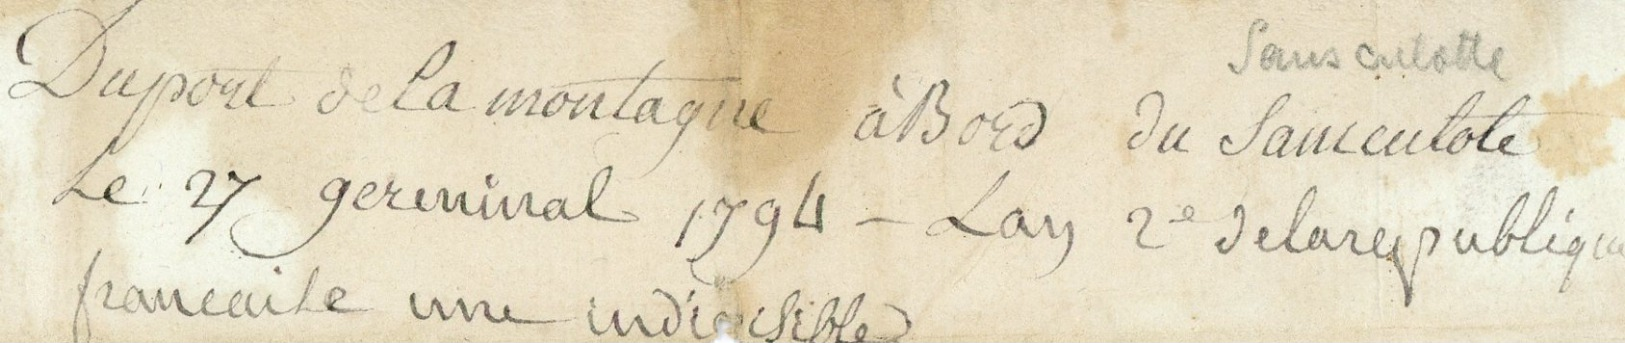 Sans culotte
Duport de la montagne à Bord du Sanculote
Le 27 germinal 1794 - Lan 2e delarepublique
francaise une indivisible